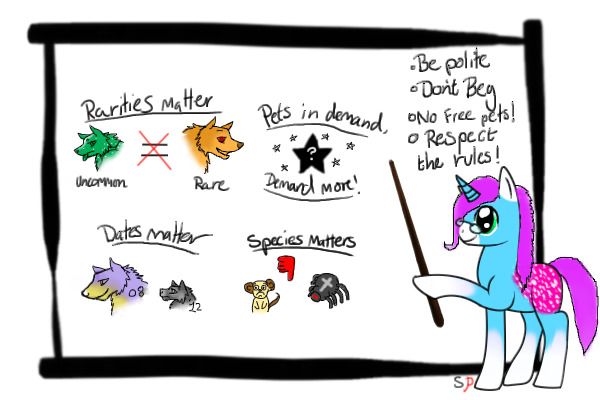 Rarities Matter
≠
Uncommon
Rare
Pets in demand,
?
Demand more!
Dates matter
08
12
Species Matters
Be polite
Don't Beg
No Free pets!
Respect
the rules!
SD